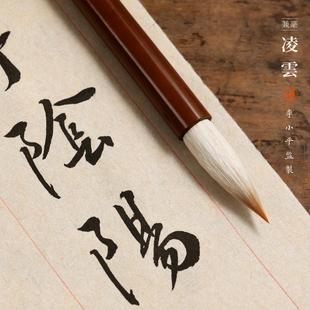 兼毫
凌雲
李小平監製
陰陽